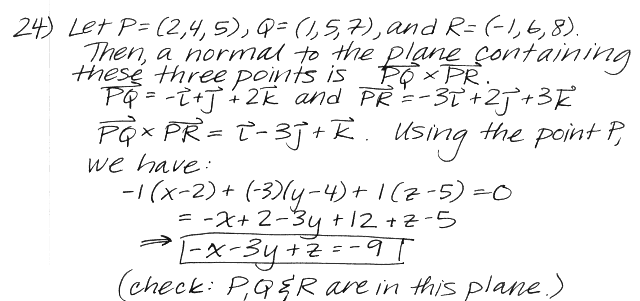 24) Let P = (2,4,5), Q = (1,5,7), and R = (-1,6,8).
Then, a normal to the plane containing
these three points is PQ⃗ × PR⃗.
PQ⃗ = -i⃗ + j⃗ + 2k⃗ and PR⃗ = -3i⃗ + 2j⃗ + 3k⃗
PQ⃗ × PR⃗ = i⃗ - 3j⃗ + k⃗. Using the point P,
we have:
-1(x-2) + (-3)(y-4) + 1(z-5) = 0
= -x + 2 - 3y + 12 + z - 5
⇒ -x - 3y + z = -9
(check: P, Q & R are in this plane.)